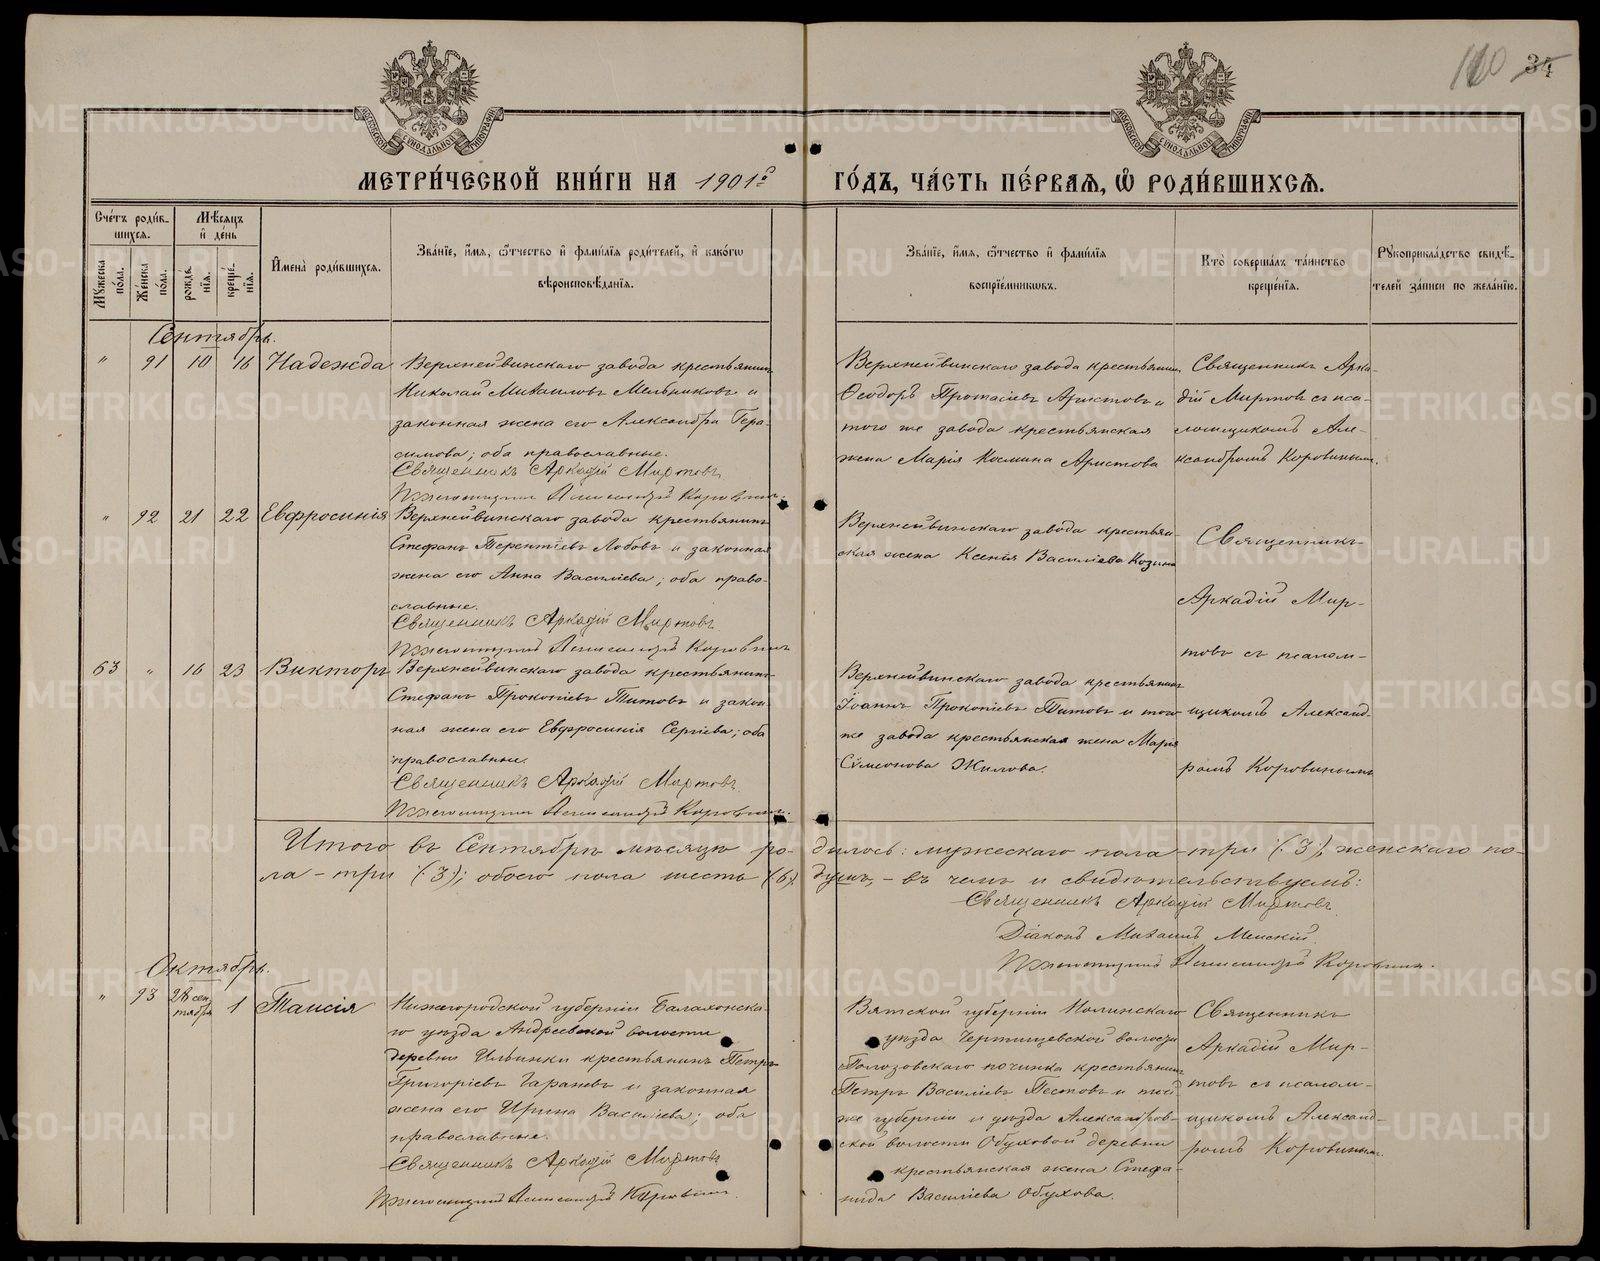 110 34
МОСКОВСКОЙ СѴНОДАЛЬНОЙ ТИПОГРАФІИ
МОСКОВСКОЙ СѴНОДАЛЬНОЙ ТИПОГРАФІИ
МЕТРИ́ЧЕСКОЙ КНИ́ГИ НА 1901й ГО́ДЪ, ЧА́СТЬ ПЕ́РВАѦ, Ѽ РОДИ́ВШИХСѦ.
Сче́тъ роди́в-
шихсѧ.
Мѣ́сѧцъ
и҆ де́нь
Мꙋ́жеска по́ла.
Же́нска по́ла.
рожде́нїѧ.
креще́нїѧ.
И҆мена̀ роди́вшихсѧ.
Зва́нїе, и҆́мѧ, ѻ҆́тчество и҆ фами́лїѧ роди́телей, и҆ како́гѡ
вѣроисповѣ́данїѧ.
Зва́нїе, и҆́мѧ, ѻ҆́тчество и҆ фами́лїѧ
воспрїе́мникѡвъ.
Кто̀ соверша́лъ та́инство
креще́нїѧ.
Рꙋкоприкла́дство свидѣ́-
телей за́писи по жела́нїю.
Сентябрь.
" 91 10 16 Надежда
Верхнейвинскаго завода крестьянинъ
Николай Михаиловъ Мельниковъ и
законная жена его Александра Гера-
симова; оба православные.
Священникъ Аркадій Миртовъ
Псаломщикъ Александръ Коровинъ.
Верхнейвинскаго завода крестьянинъ
Ѳеодоръ Протасіевъ Аристовъ и
того же завода крестьянская
жена Марія Космина Аристова
Священникъ Арка-
дій Миртовъ съ пса-
ломщикомъ Але-
ксандромъ Коровинымъ.
" 92 21 22 Евфросинія
Верхнейвинскаго завода крестьянинъ
Стефанъ Терентіевъ Лобовъ и законная
жена его Анна Василіева; оба право-
славные.
Священникъ Аркадій Миртовъ
Псаломщикъ Александръ Коровинъ
Верхнейвинскаго завода крестьян-
ская жена Ксенія Василіева Козина
Священникъ
Аркадій Мир-
товъ съ псалом-
щикомъ Александ-
ромъ Коровинымъ
63 " 16 23 Викторъ
Верхнейвинскаго завода крестьянинъ
Стефанъ Прокопіевъ Титовъ и закон-
ная жена его Евфросинія Сергіева; оба
православные.
Священникъ Аркадій Миртовъ.
Псаломщикъ Александръ Коровинъ.
Верхнейвинскаго завода крестьянинъ
Іоаннъ Прокопіевъ Титовъ и того
же завода крестьянская жена Марія
Сѵмеонова Жилова.
Итого въ Сентябрѣ мѣсяцѣ ро- дилось: мужескаго пола – три (3); женскаго по-
ла – три (3); обоего пола шесть (6) душъ, – въ чемъ и свидѣтельствуемъ:
Священникъ Аркадій Миртовъ.
Діаконъ Михаилъ
Псаломщикъ Александръ Коровинъ.
Октябрь.
" 93 28 сен- 1 Таисія
тября
Нижегородской губерніи Балахонска-
го уѣзда Андреевской волости
деревни Ильинки крестьянинъ Петръ
Григоріевъ Гараневъ и законная
жена его Ирина Василіева; оба
православные.
Священникъ Аркадій Миртовъ
Псаломщикъ Александръ Коровинъ.
Вятской губерніи Нолинскаго
уѣзда Чертищевской волости
починка крестьянинъ
Петръ Василіевъ Пестовъ и той
же губерніи и уѣзда Александров-
ской волости Обуховой деревни
крестьянская жена Стефа-
нида Василіева Обухова.
Священникъ
Аркадій Мир-
товъ съ псалом-
щикомъ Александ-
ромъ Коровинымъ.
METRIKI.GASO-URAL.RU